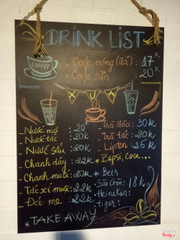 DRINK LIST
COFFEE
- Cafe nóng (đá) : 17K
- Cafe sữa : 20K
- Nước mơ : 20
- Nước tắc : 22K
- Nước sấu : 20K
- Chanh dây : 22K
- Chanh muối : 22K
- Tắc xí muội : 22K
- Đá me : 22K
- Trà đào : 30K
- Trà : 20K
- Lipton : 25K
* Pepsi, Coca...
* Beer
Sài Gòn : 18K
Heineken :
Tiger :
TAKE AWAY